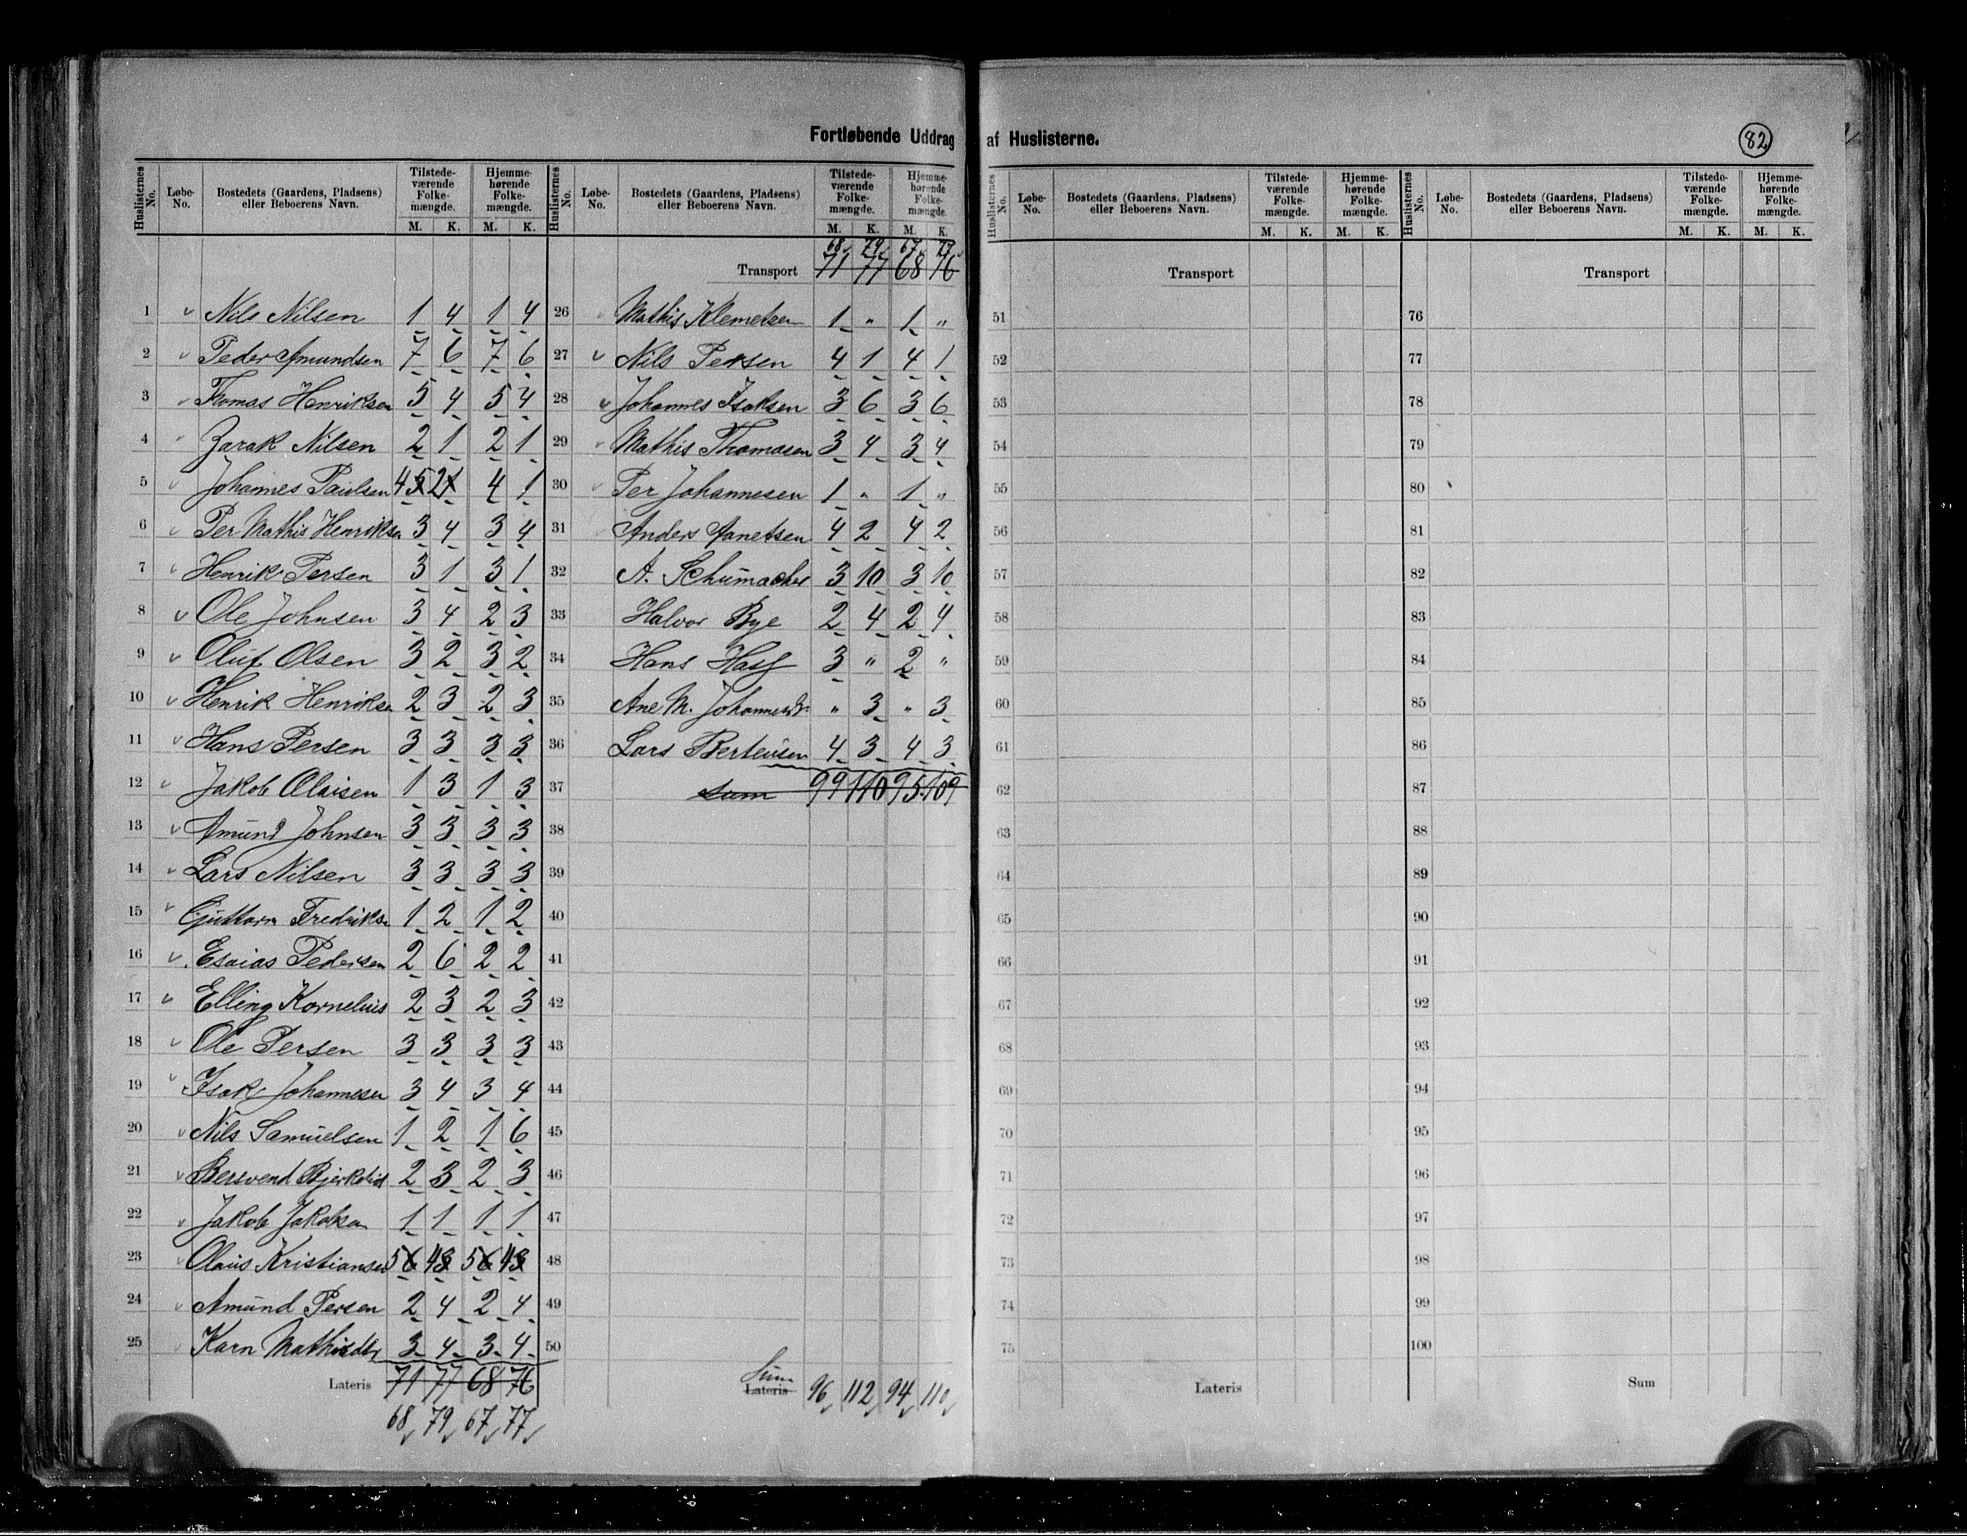 Fortløbende Uddrag af Huslisterne.
82
Huslisternes No. Løbe-No. Bostedets (Gaardens, Pladsens) eller Beboerens Navn. Tilstedeværende Folkemængde. M. K. Hjemmehørende Folkemængde. M. K.
1 Nils Nilsen 1 4 1 4
2 Peder Amundsen 7 6 7 6
3 Thomas Henriksen 5 4 5 4
4 Zarak Nilsen 2 1 2 1
5 Johannes Paulsen 4 5 2 1 4 1
6 Per Mathis Henriksen 3 4 3 4
7 Henrik Persen 3 1 3 1
8 Ole Johnsen 3 4 2 3
9 Oluf Olsen 3 2 3 2
10 Henrik Henriksen 2 3 2 3
11 Hans Persen 3 3 3 3
12 Jakob Olaisen 1 3 1 3
13 Amund Johnsen 3 3 3 3
14 Lars Nilsen 3 3 3 3
15 Guttorm Fredriksen 1 2 1 2
16 Esaias Pedersen 2 6 2 2
17 Elling Kornelius 2 3 2 3
18 Ole Persen 3 3 3 3
19 Isak Johannesen 3 4 3 4
20 Nils Samuelsen 1 2 1 6
21 Bersvend Bjerkelid 2 3 2 3
22 Jakob Jakobsen 1 1 1 1
23 Olaus Kristiansen 5 6 4 3 5 6 4 3
24 Amund Persen 2 4 2 4
25 Karn Mathisdtr 3 4 3 4
Lateris 71 77 68 76
68 79 67 77
Huslisternes No. Løbe-No. Bostedets (Gaardens, Pladsens) eller Beboerens Navn. Tilstedeværende Folkemængde. M. K. Hjemmehørende Folkemængde. M. K.
68 79 67 77
Transport 71 77 68 76
26 Mathis Klemetsen 1 " 1 "
27 Nils Persen 4 1 4 1
28 Johannes Isaksen 3 6 3 6
29 Mathis Thomasen 3 4 3 4
30 Per Johannesen 1 " 1 "
31 Anders Aanetsen 4 2 4 2
32 A. Schumacher 3 10 3 10
33 Halvor Bye 2 4 2 4
34 Hans 3 " 2 "
35 Ane M. Johannesdr " 3 " 3
36 Lars Berteusen 4 3 4 3
37 Sum 99 110 95 109
38
39
40
41
42
43
44
45
46
47
48
49
50
Sum
Lateris 96 112 94 110
Huslisternes No. Løbe-No. Bostedets (Gaardens, Pladsens) eller Beboerens Navn. Tilstedeværende Folkemængde. M. K. Hjemmehørende Folkemængde. M. K.
Transport
51
52
53
54
55
56
57
58
59
60
61
62
63
64
65
66
67
68
69
70
71
72
73
74
75
Lateris
Huslisternes No. Løbe-No. Bostedets (Gaardens, Pladsens) eller Beboerens Navn. Tilstedeværende Folkemængde. M. K. Hjemmehørende Folkemængde. M. K.
Transport
76
77
78
79
80
81
82
83
84
85
86
87
88
89
90
91
92
93
94
95
96
97
98
99
100
Sum